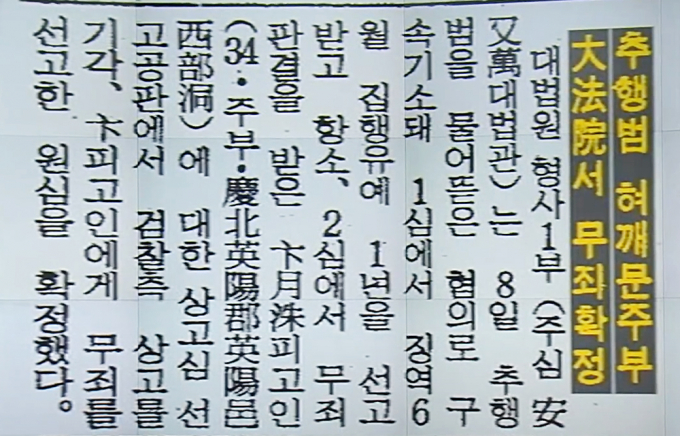 추행범 혀깨문주부
大法院서 무죄확정
대법원 형사1부(주심 安
又萬대법관)는 8일 추행
범을 물어뜯은 협의로 구
속기소돼 1심에서 징역6
월 집행유예 1년을 선고
받고 항소、2심에서 무죄
판결을 받은 卞月洙피고인
(34·주부·慶北英陽郡英陽邑
西部洞)에 대한 상고심 선
고공판에서 검찰측 상고를
기각、卞피고인에게 무죄를
선고한 원심을 확정했다。